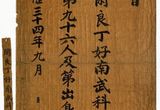 旨
閑良丁好南武科
第九十六人及第出身
三十四年九月